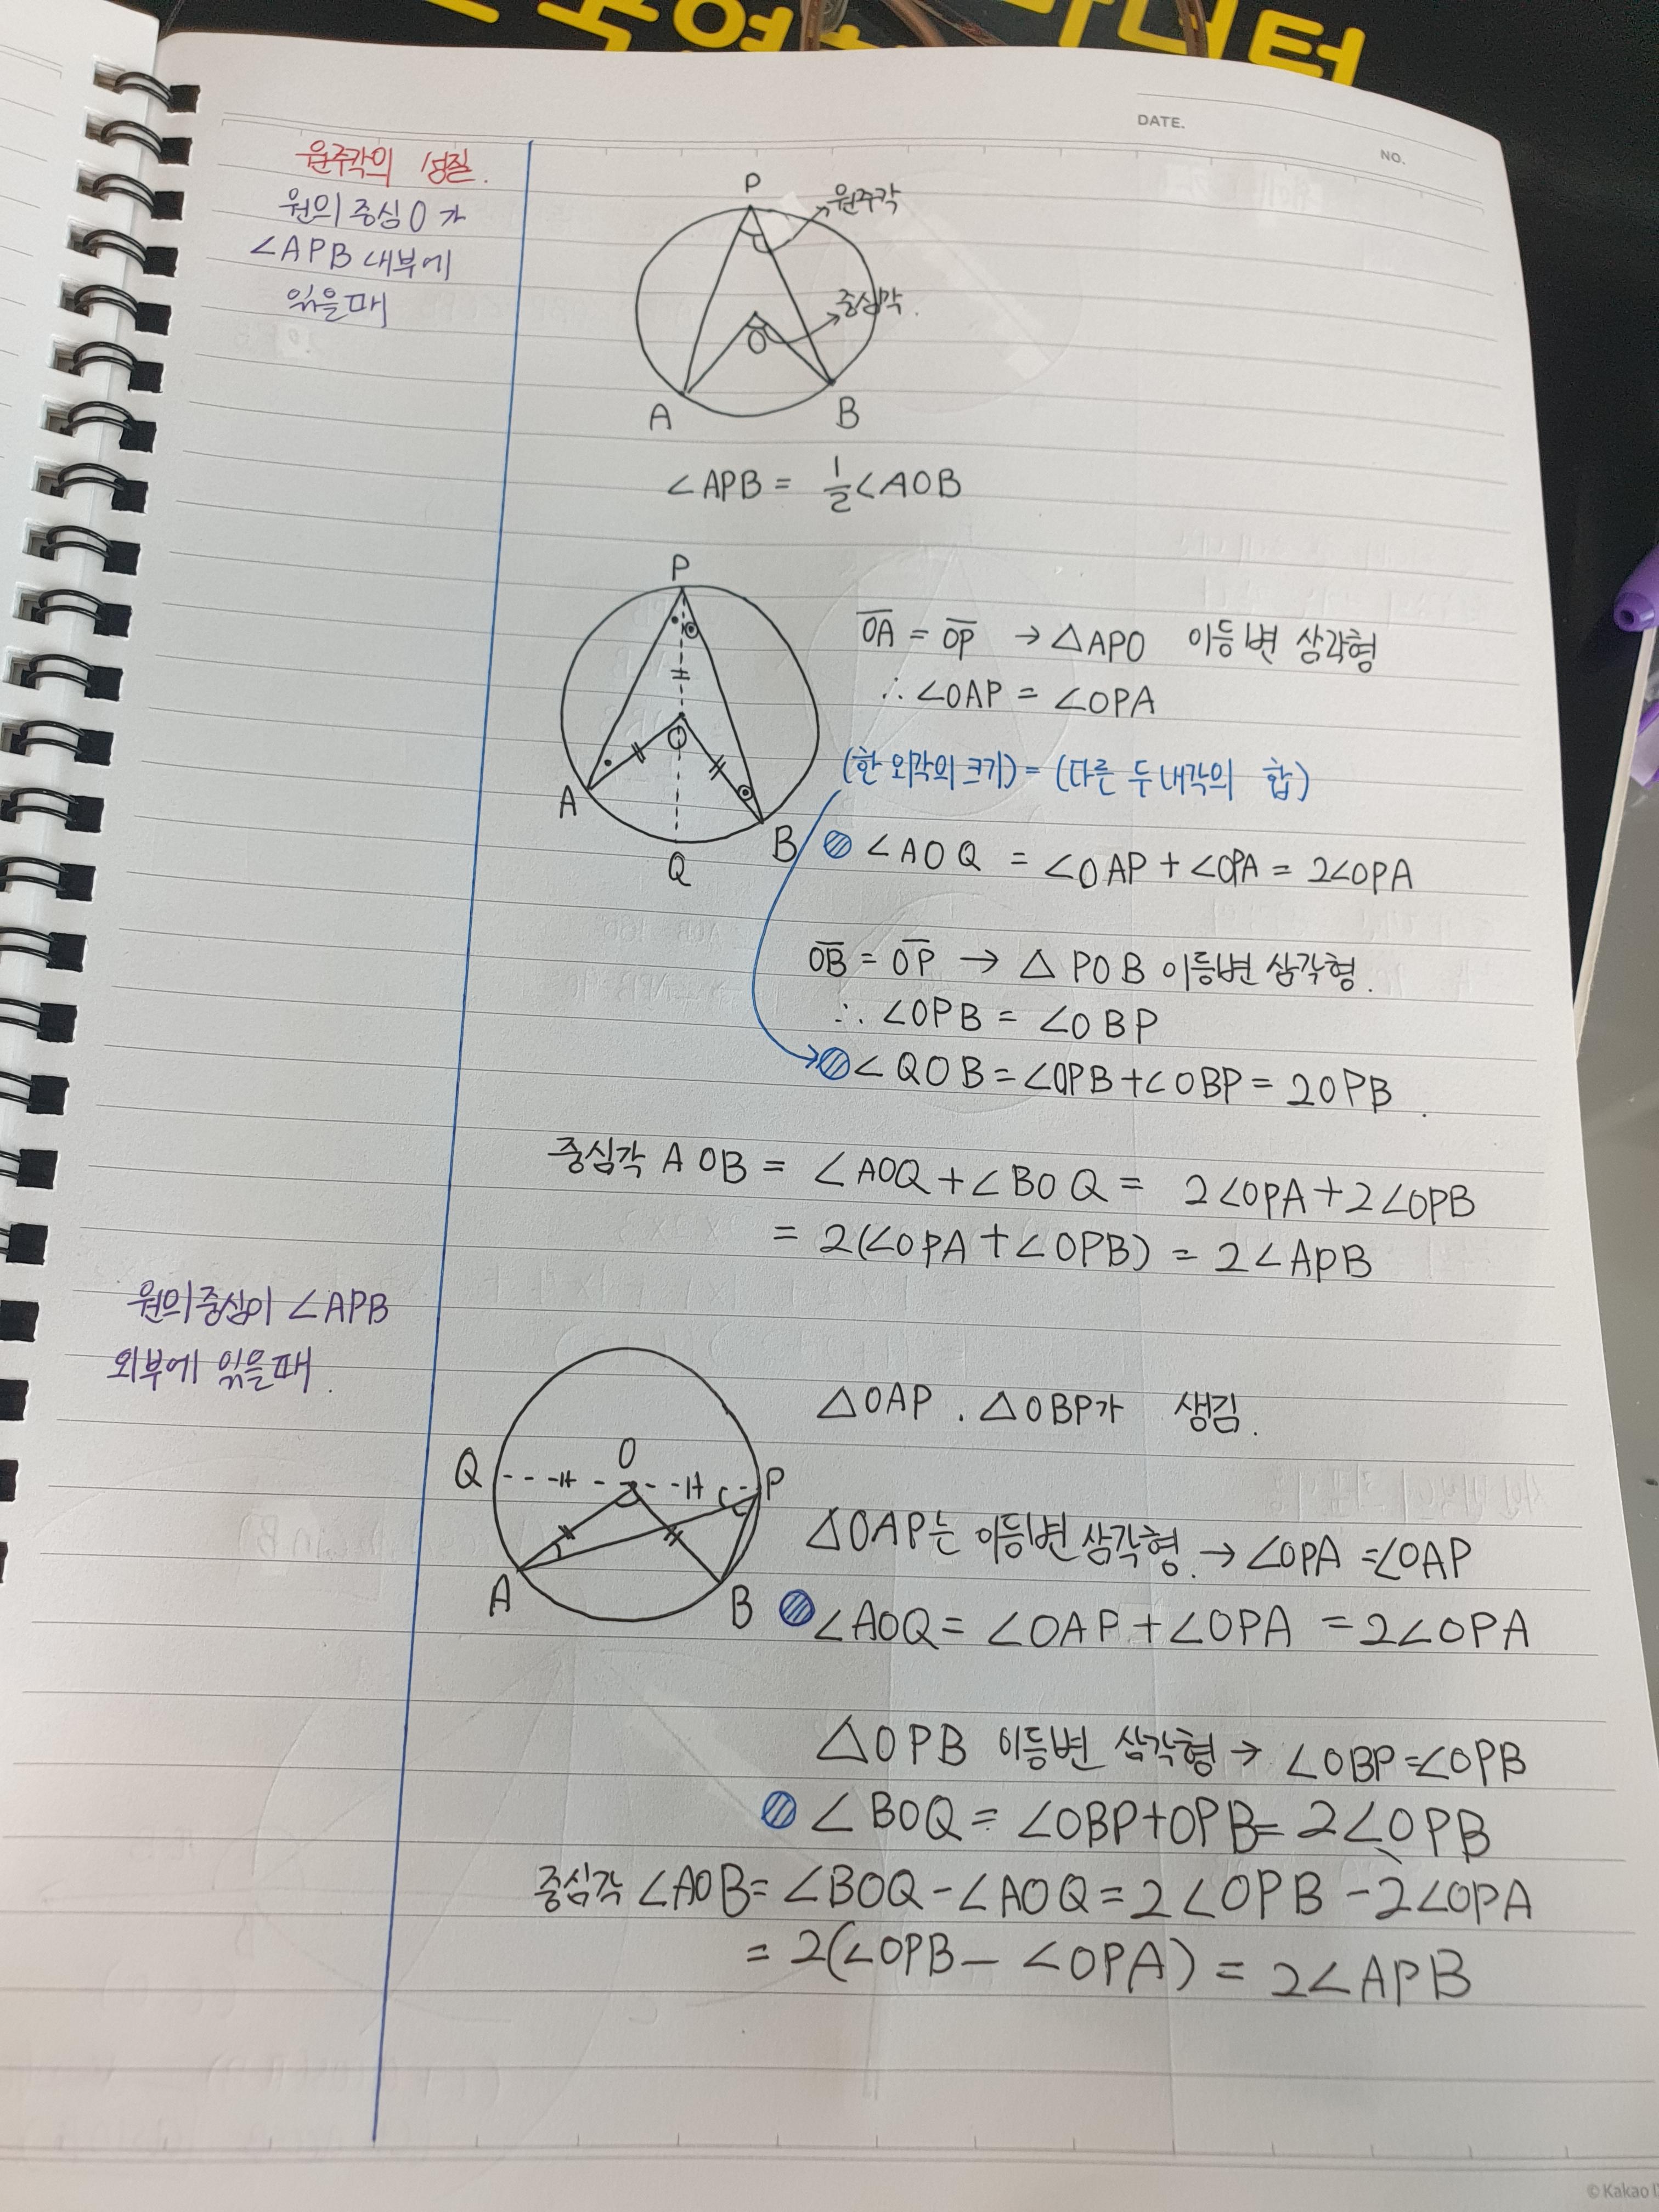 DATE.
NO.
원주각의 성질.
원의 중심 O가
∠APB 내부에
있을때
P
원주각
중심각.
O
A
B
∠APB = 1/2∠AOB
P
O
A
B
Q
OA = OP → △APO 이등변 삼각형
∴ ∠OAP = ∠OPA
(한 외각의 크기) = (다른 두 내각의 합)
∠AOQ = ∠OAP + ∠OPA = 2∠OPA
OB = OP → △POB 이등변 삼각형.
∴ ∠OPB = ∠OBP
∠QOB = ∠OPB + ∠OBP = 2OPB.
중심각 AOB = ∠AOQ + ∠BOQ = 2∠OPA + 2∠OPB
= 2(∠OPA + ∠OPB) = 2∠APB
원의 중심이 ∠APB
외부에 있을때.
Q
O
P
A
B
△OAP. △OBP가 생김.
△OAP는 이등변 삼각형. → ∠OPA = ∠OAP
∠AOQ = ∠OAP + ∠OPA = 2∠OPA
△OPB 이등변 삼각형 → ∠OBP = ∠OPB
∠BOQ = ∠OBP + OPB = 2∠OPB
중심각 ∠AOB = ∠BOQ - ∠AOQ = 2∠OPB - 2∠OPA
= 2(∠OPB - ∠OPA) = 2∠APB
© Kakao